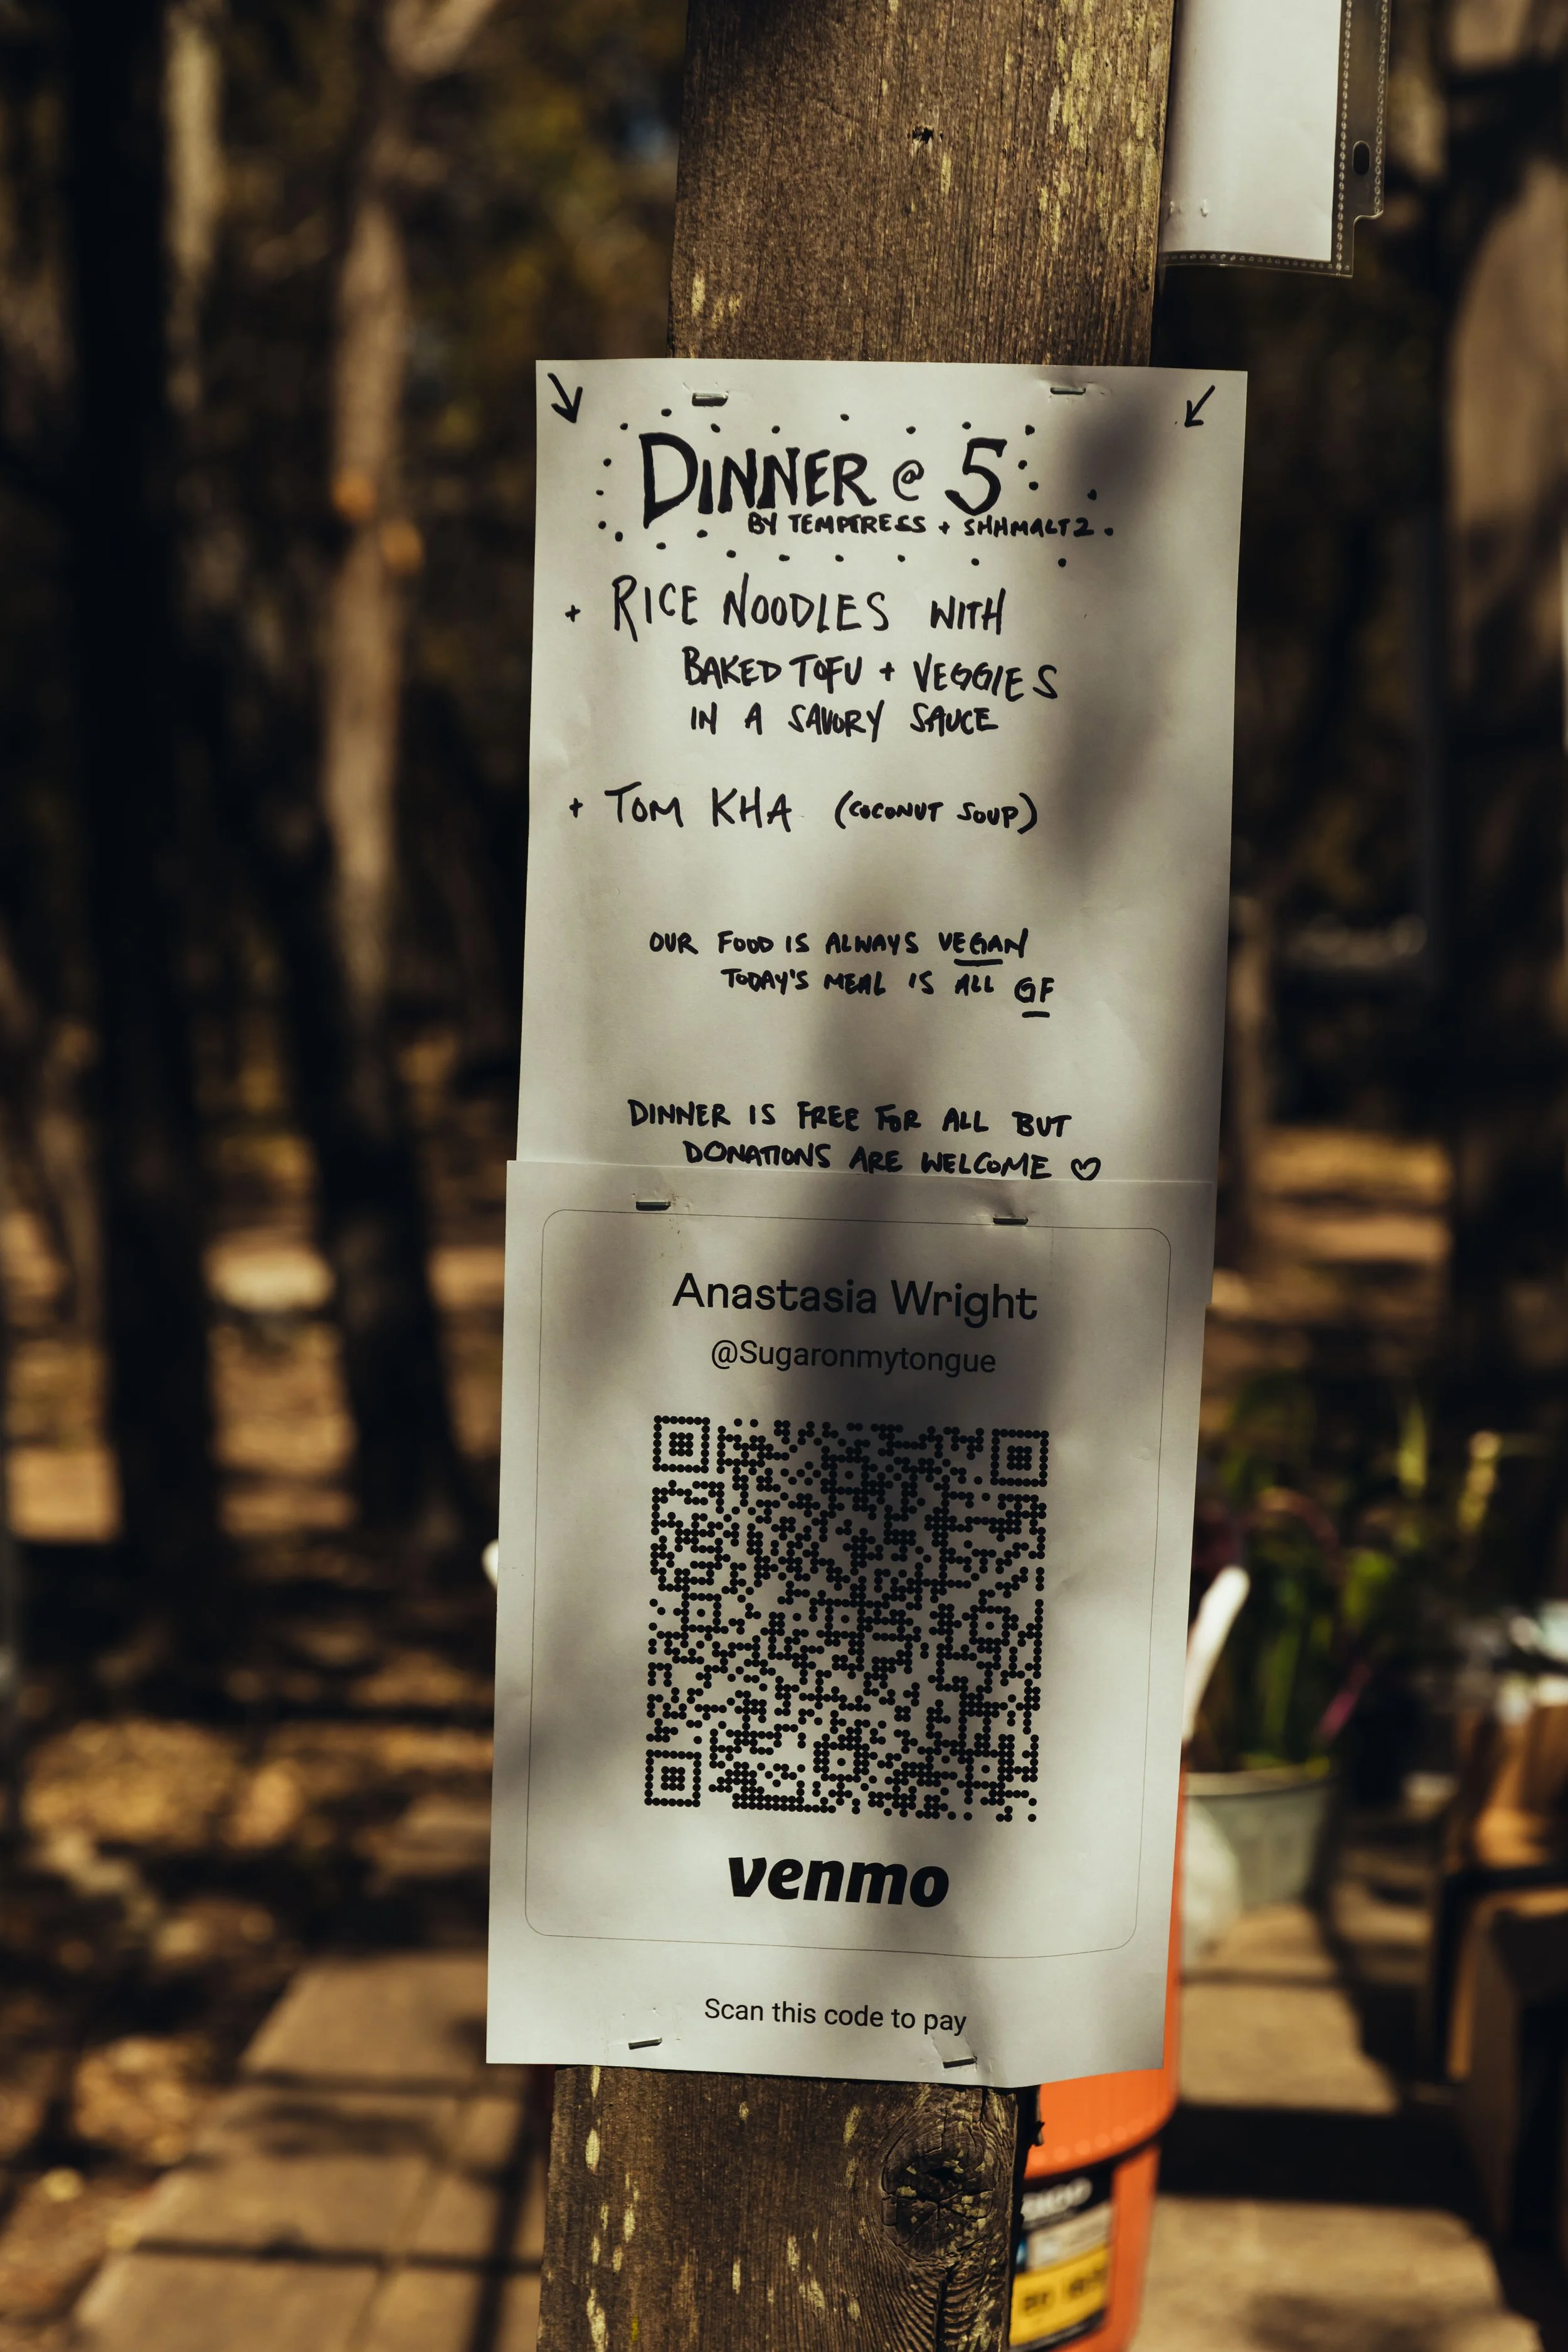 DINNER @ 5
BY TEMPTRESS + SHHMALTZ.
+ RICE NOODLES WITH
BAKED TOFU + VEGGIES
IN A SAVORY SAUCE
+ TOM KHA (COCONUT SOUP)
OUR FOOD IS ALWAYS VEGAN
TODAY'S MEAL IS ALL GF
DINNER IS FREE FOR ALL BUT
DONATIONS ARE WELCOME ♡
Anastasia Wright
@Sugaronmytongue
venmo
Scan this code to pay